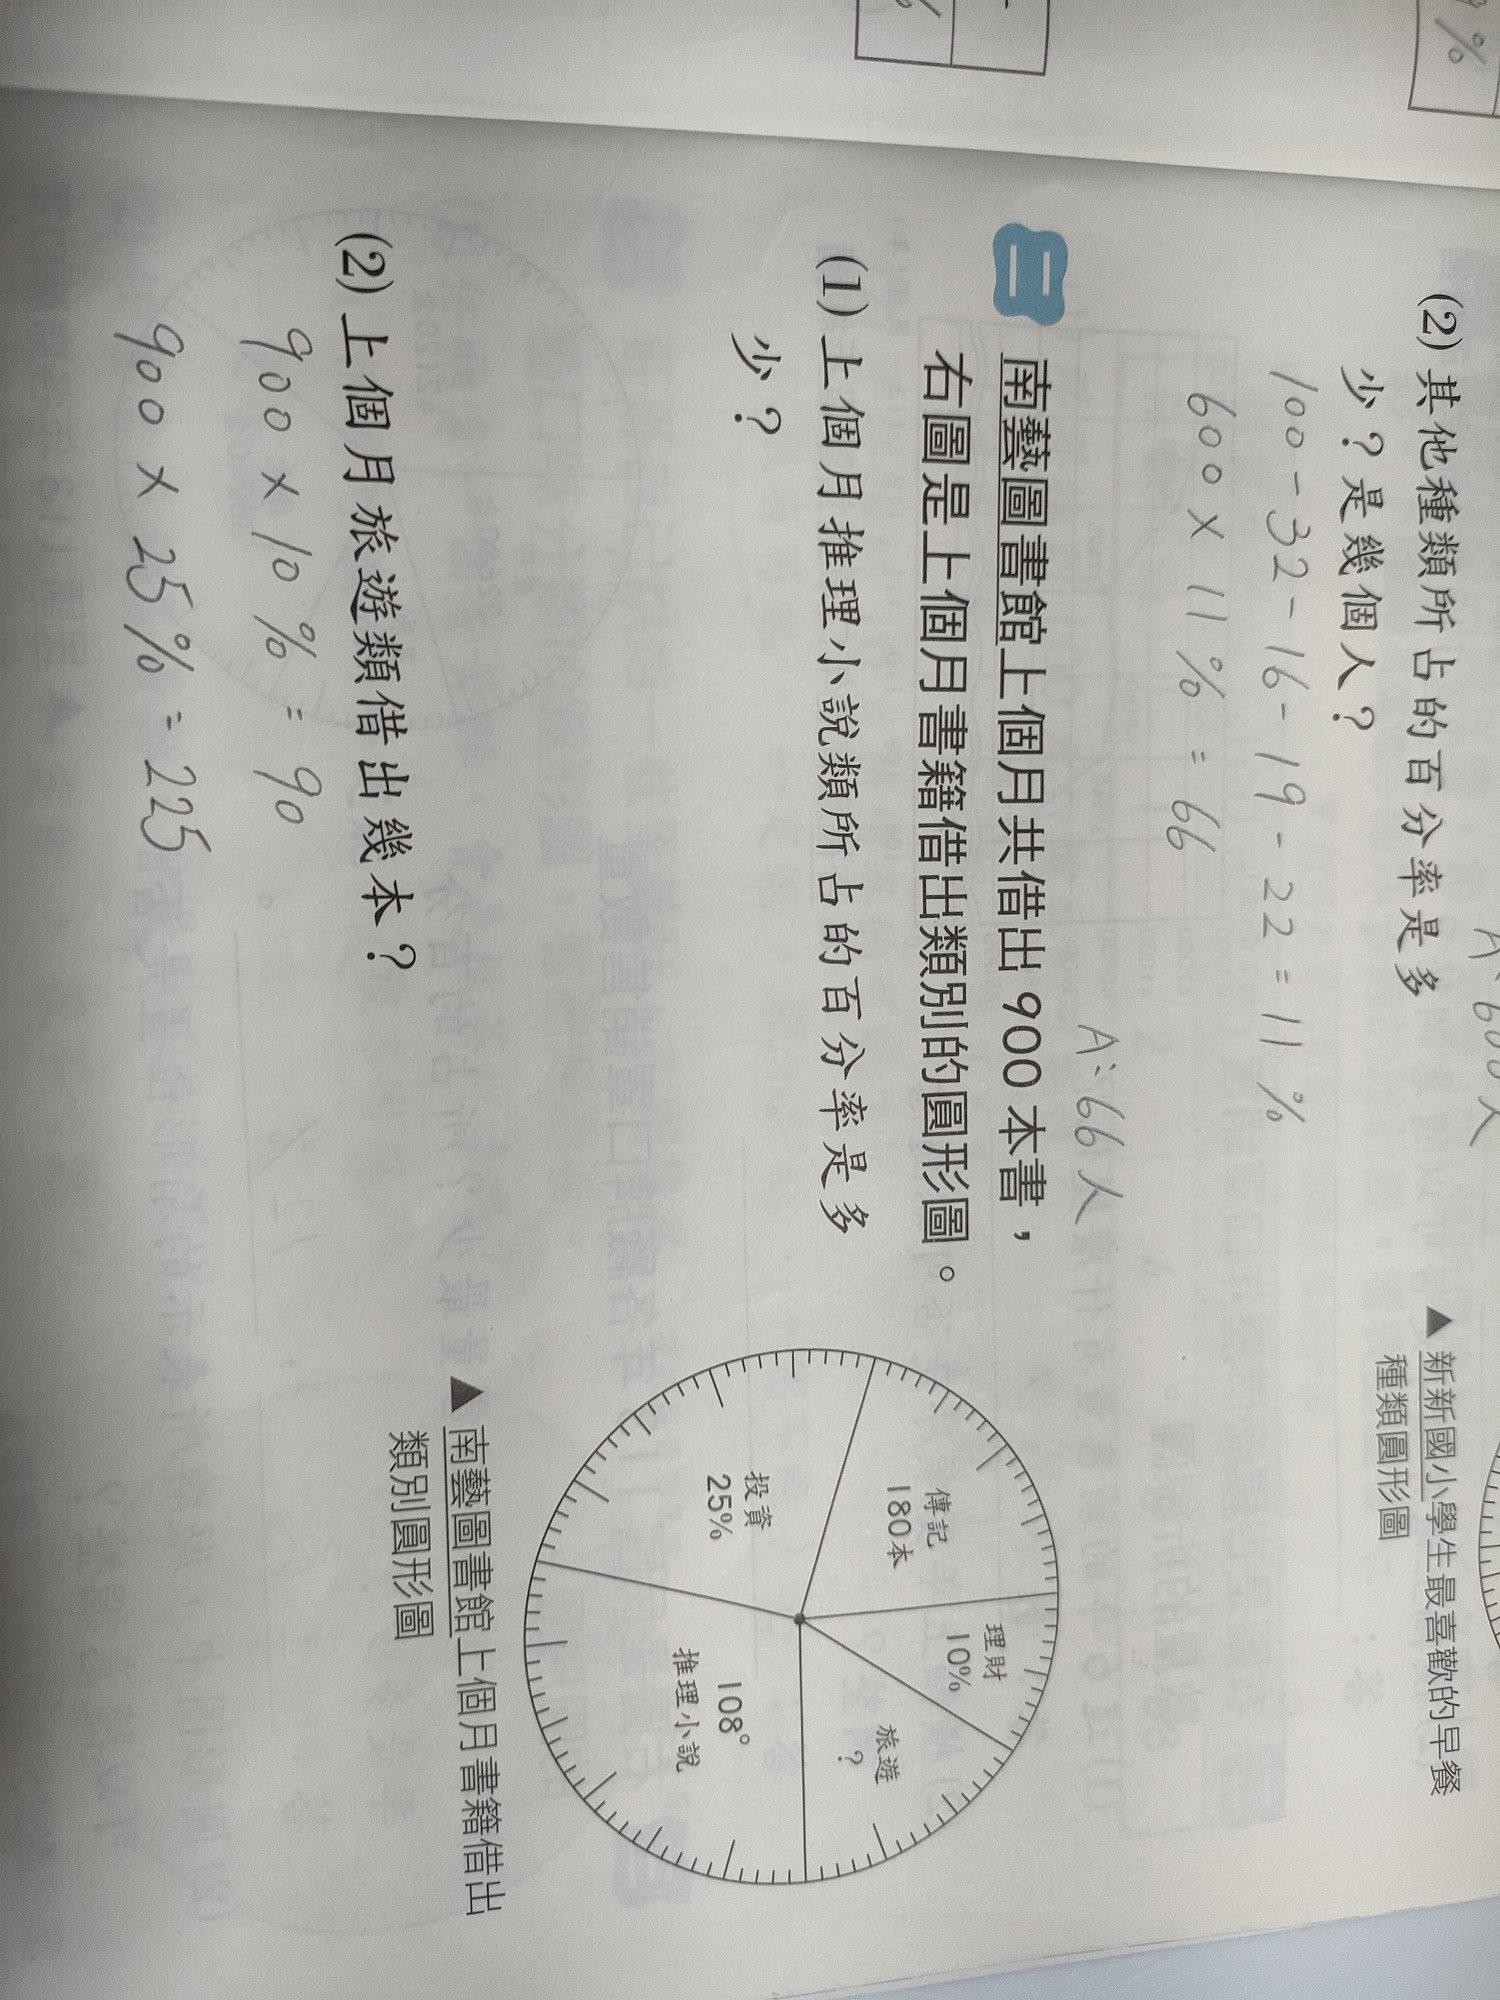 %
9%
(2) 其他種類所占的百分率是多
少？是幾個人？
100-32-16-19-22=11%
600×11%=66
A:600人
A:66人
▲新新國小學生最喜歡的早餐
種類圓形圖
二 南藝圖書館上個月共借出900本書，
右圖是上個月書籍借出類別的圓形圖。
(1) 上個月推理小說類所占的百分率是多
少？
(2) 上個月旅遊類借出幾本？
900×10%=90
900×25%=225
傳記
180本
理財
10%
旅遊
？
投資
25%
108°
推理小說
▲南藝圖書館上個月書籍借出
類別圓形圖